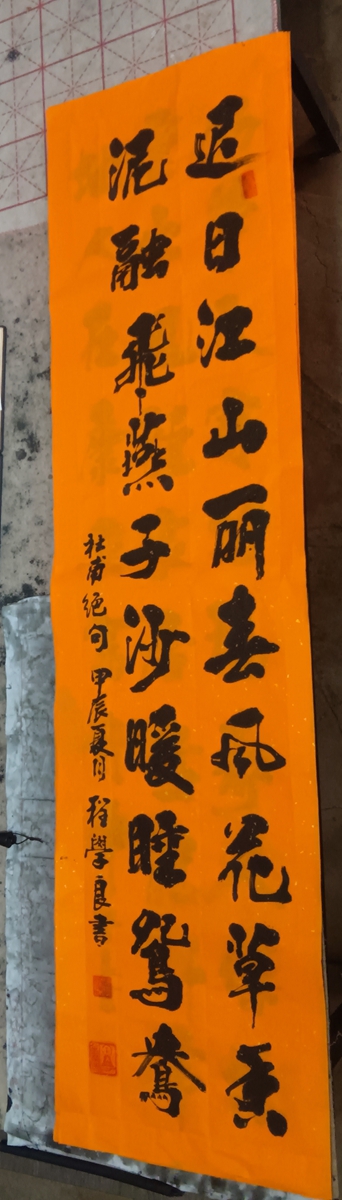 迟日江山丽春风花草香
泥融飞燕子沙暖睡鸳鸯
杜甫绝句 甲辰夏月 程學良書